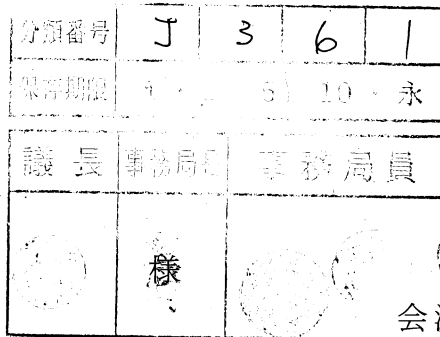 分類番号 J 3 6 1
保存期限 1 5 10 永
議長 事務局長 事務局員
様
会